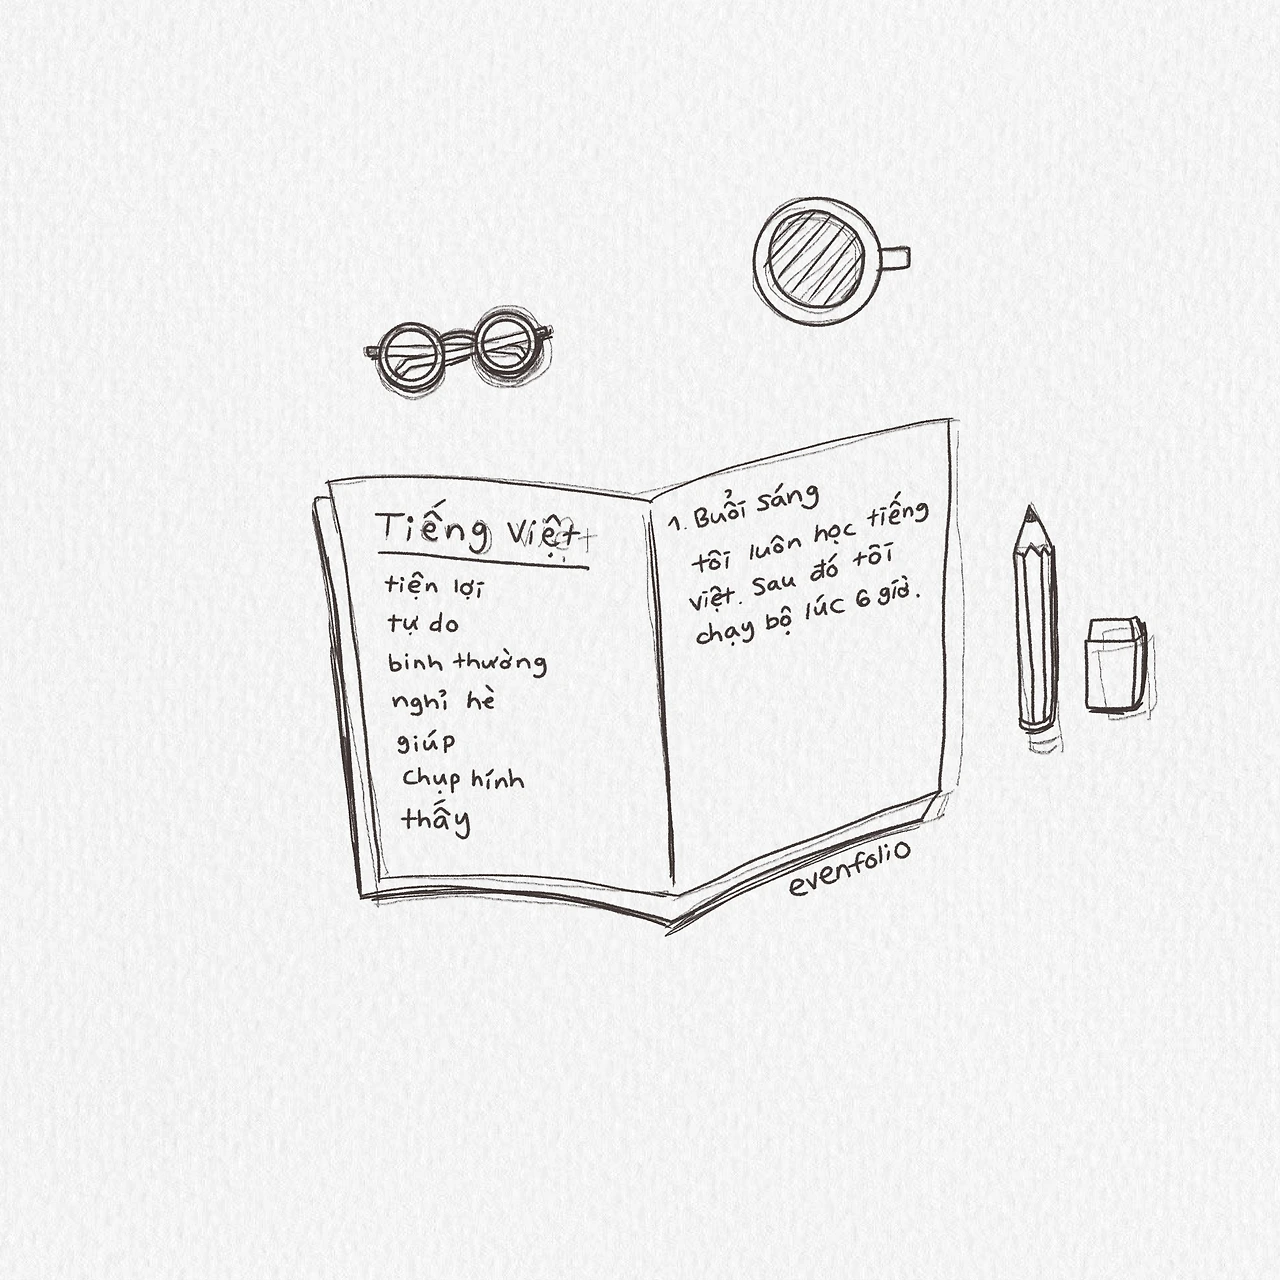 Tiếng Việt
tiện lợi
tự do
binh thường
nghỉ hè
giúp
chụp hính
thấy
1. Buổi sáng
tôi luôn học tiếng
việt. Sau đó tôi
chạy bộ lúc 6 giờ.
evenfolio